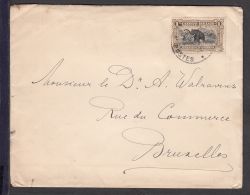 POSTES
Monsieur le Dr A. Walravens
Rue du Commerce
Bruxelles